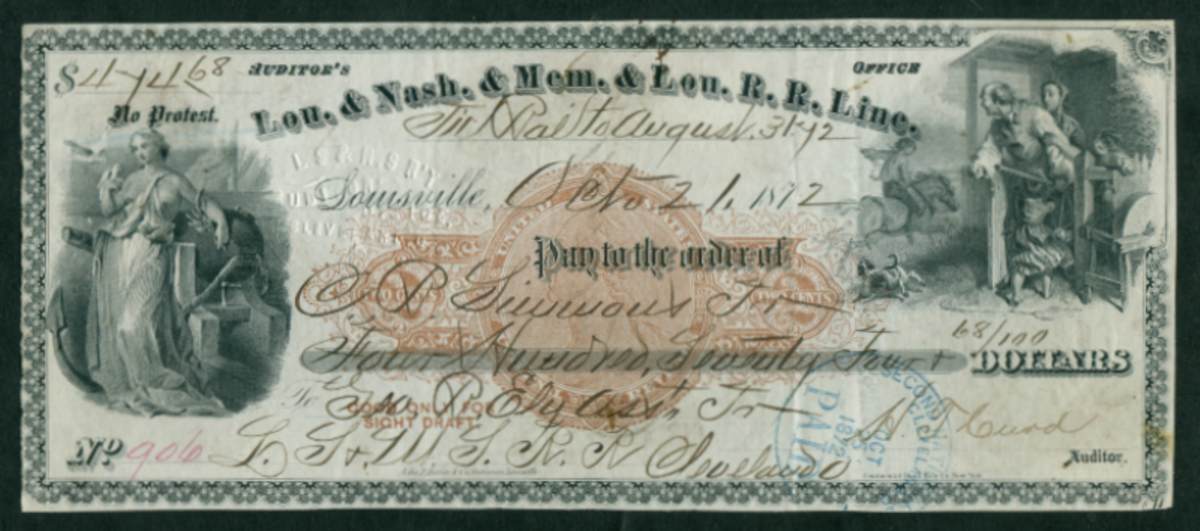 $474 68
AUDITOR'S OFFICE
No Protest.
Lou. & Nash. & Mem. & Lou. R. R. Line.
to August 31 72
Louisville, Octo 21, 1872
Pay to the order of
C. P. Simmons Tr
Four Hundred, Seventy Four & 68/100 DOLLARS
To Geo P. Ely Asst, Tr
GOOD ONLY FOR
SIGHT DRAFT.
No 906 L. S. & M. S. R. R Cleveland
Auditor.
SECOND
PAID
OCT
1872